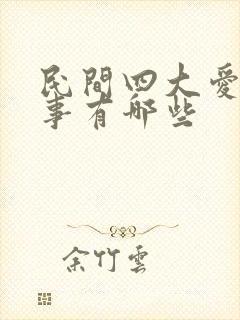 民間四大愛
事有哪些
余竹雲